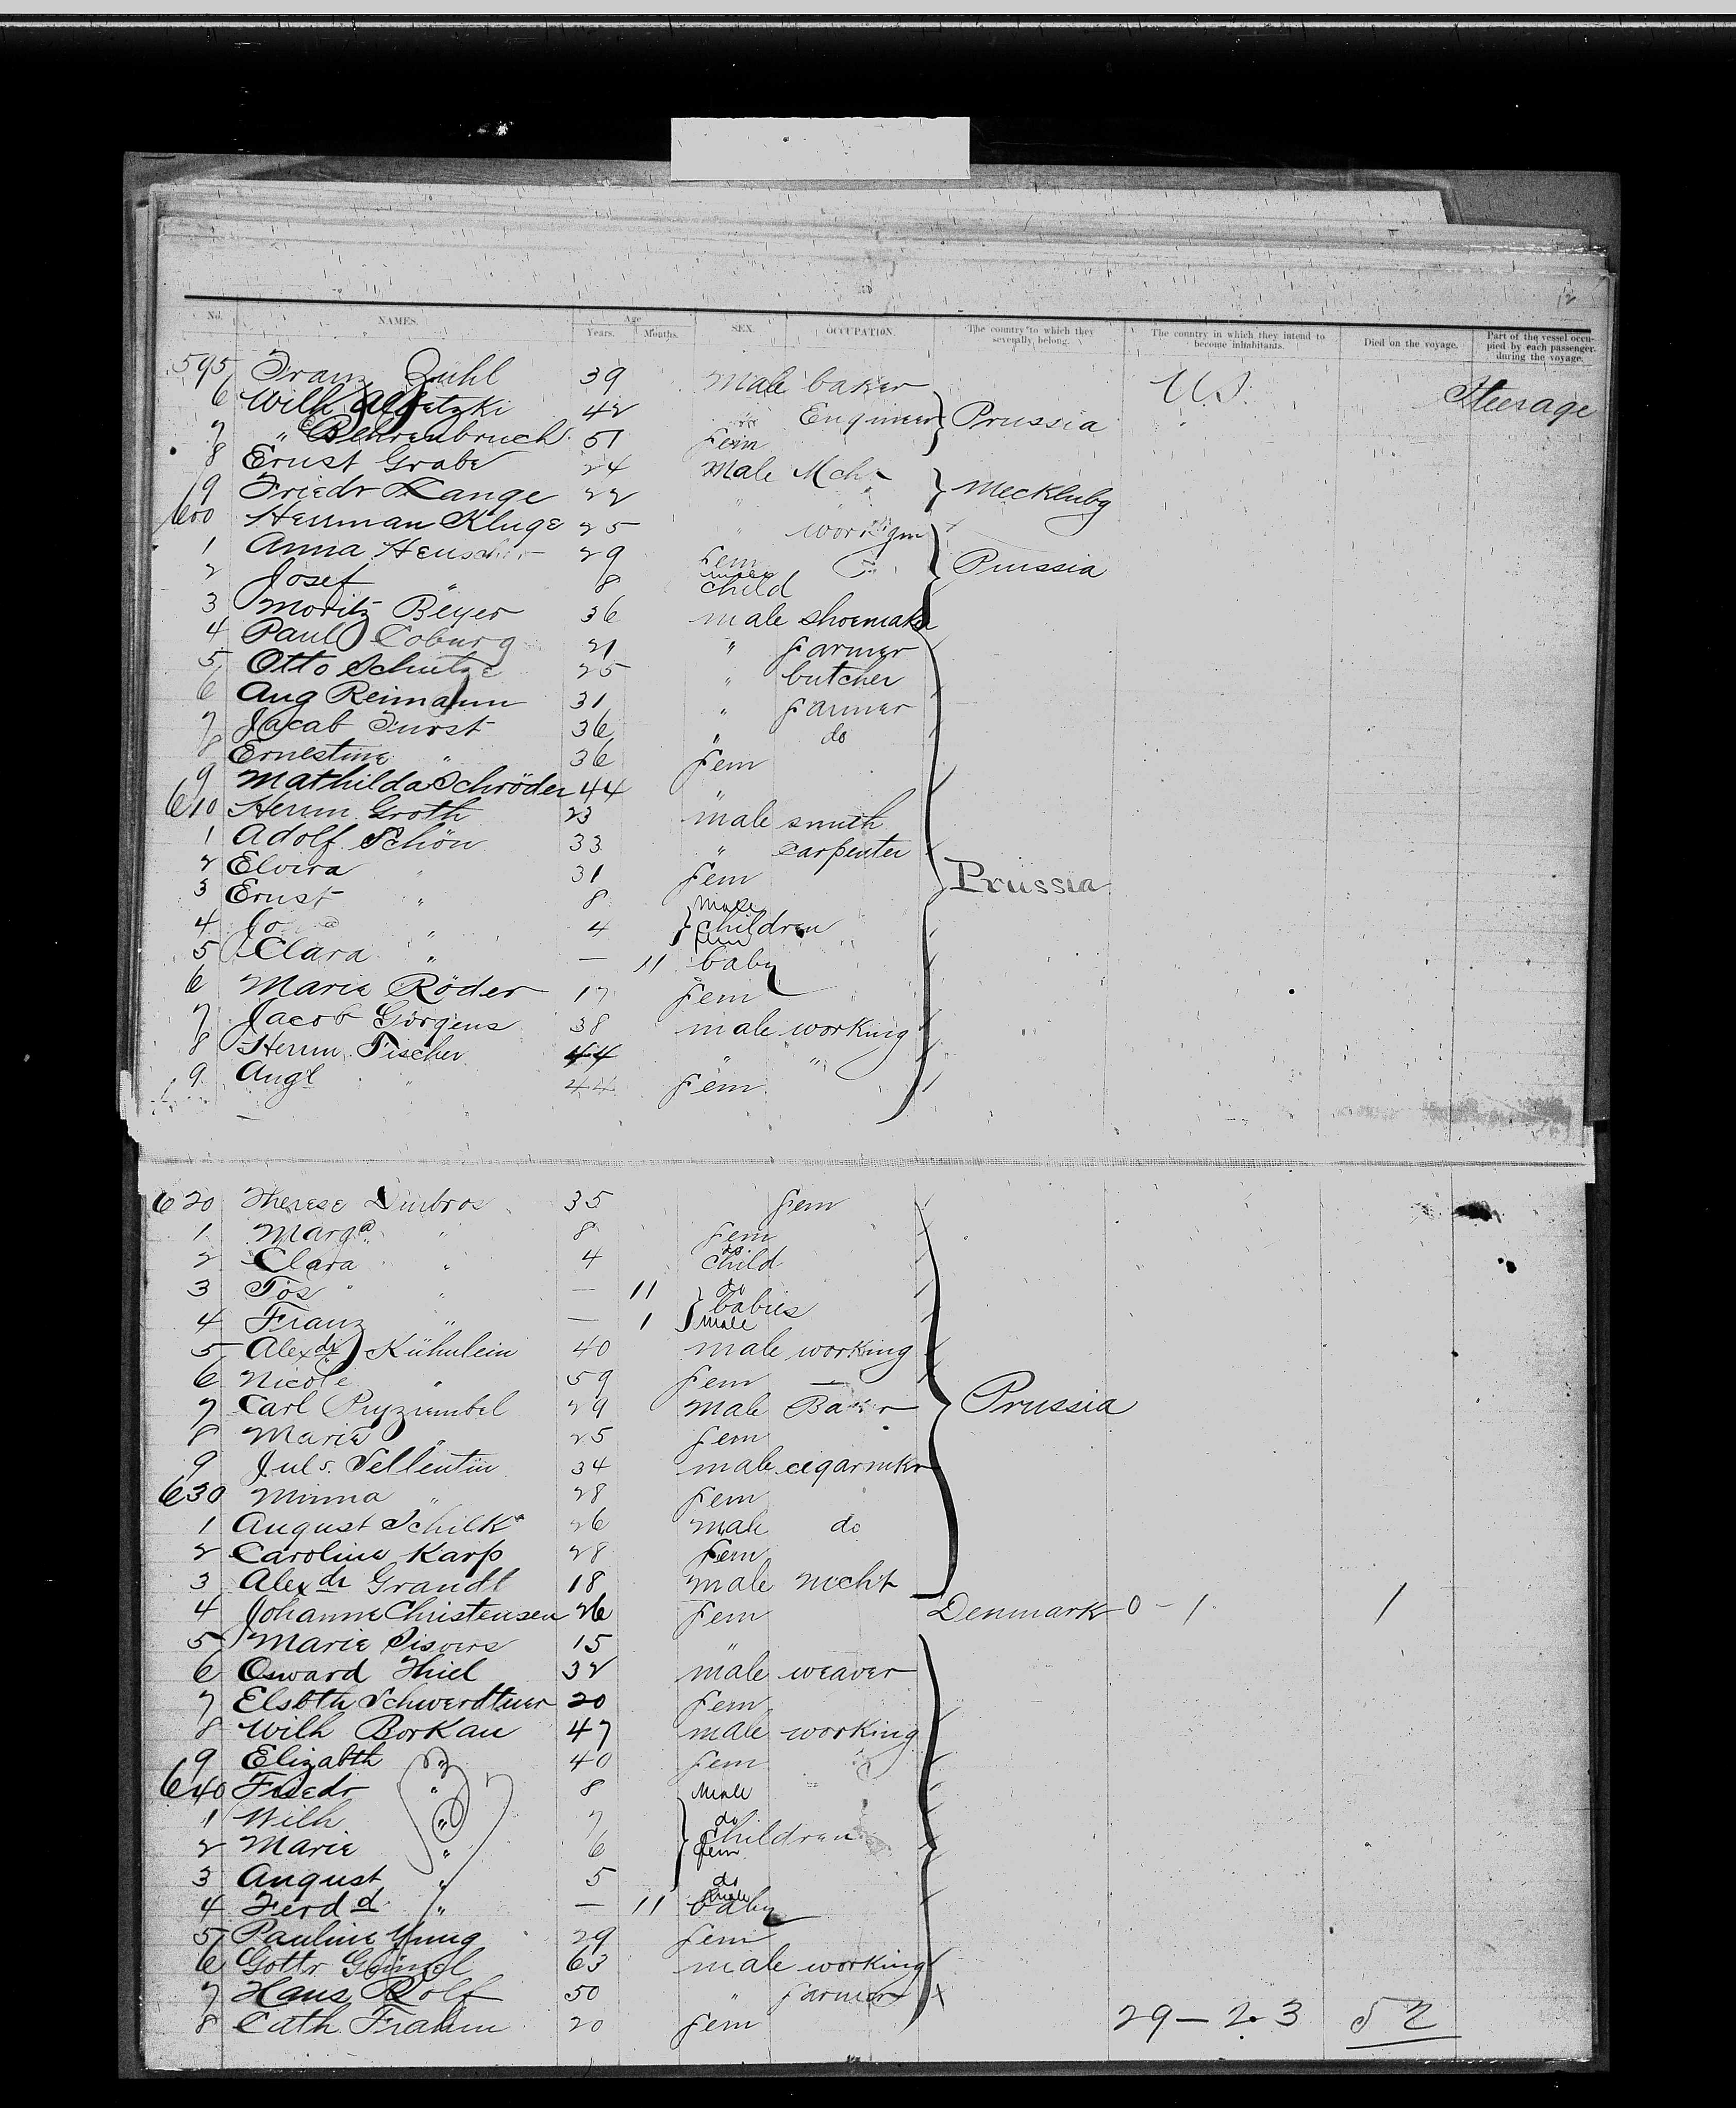 12
No. NAMES. Age Years. Months. SEX. OCCUPATION. The country to which they severally belong. The country in which they intend to become inhabitants. Died on the voyage. Part of the vessel occupied by each passenger during the voyage.
595 Franz Zühl 39 male baker U.S. Steerage
6 Wilh 42 do Engineer Prussia
7 " Behrenbruch 51 fem
8 Ernst Grabe 24 male Mch
9 Friedr Lange 22 " " Mecklubg
600 Herrman Kluge 25 " workgm
1 Anna 29 fem " Prussia
2 Josef " 8 male child
3 Moritz Beyer 36 male shoemaker
4 Paul Coburg 21 " farmer
5 Otto Schulze 25 " butcher
6 Aug Reimann 31 " farmer
7 Jacab Furst 36 " do
8 Ernestine " 36 fem
9 Mathilda Schröder 44 "
610 Herrm Groth 23 male smith
1 Adolf Schön 33 " carpenter
2 Elvira " 31 fem Prussia
3 Ernst " 8 male
4 " 4 children fem
5 Clara " — 11 baby
6 Marie Röder 17 fem
7 Jacob Görgens 38 male working
8 Herrm Fischer 44 " "
9 Augt " 44 fem
620 Therese 35 fem
1 Marga " 8 fem
2 Clara " 4 do child
3 Jos " — 11 do babies
4 Franz " — 1 male
5 Alexdr Kühnlein 40 male working
6 Nicole " 59 fem —
7 Carl 29 male Baker
8 Marie " 25 fem Prussia
9 Juls. Sellentin 34 male cigarmkr
630 Minna " 28 fem
1 August Schilk 26 male do
2 Caroline Karp 28 fem
3 Alexdr Grandt 18 male mcht
4 Johanne Christensen 26 fem Denmark 0 - 1 1
5 Marie 15 "
6 Osward Thiel 32 male weaver
7 Elsbth Schwerdtner 20 fem
8 Wilh Borkau 47 male working
9 Elizabth " 40 fem
640 Friedr " 8 male
1 Wilh " 7 do children
2 Marie " 6 fem
3 August " 5 do
4 Ferdd " — 11 male baby
5 Pauline 29 fem
6 Gottr 63 male working
7 Hans Rolf 50 " farmer
8 Cath. Frahm 20 fem 29 - 23 52